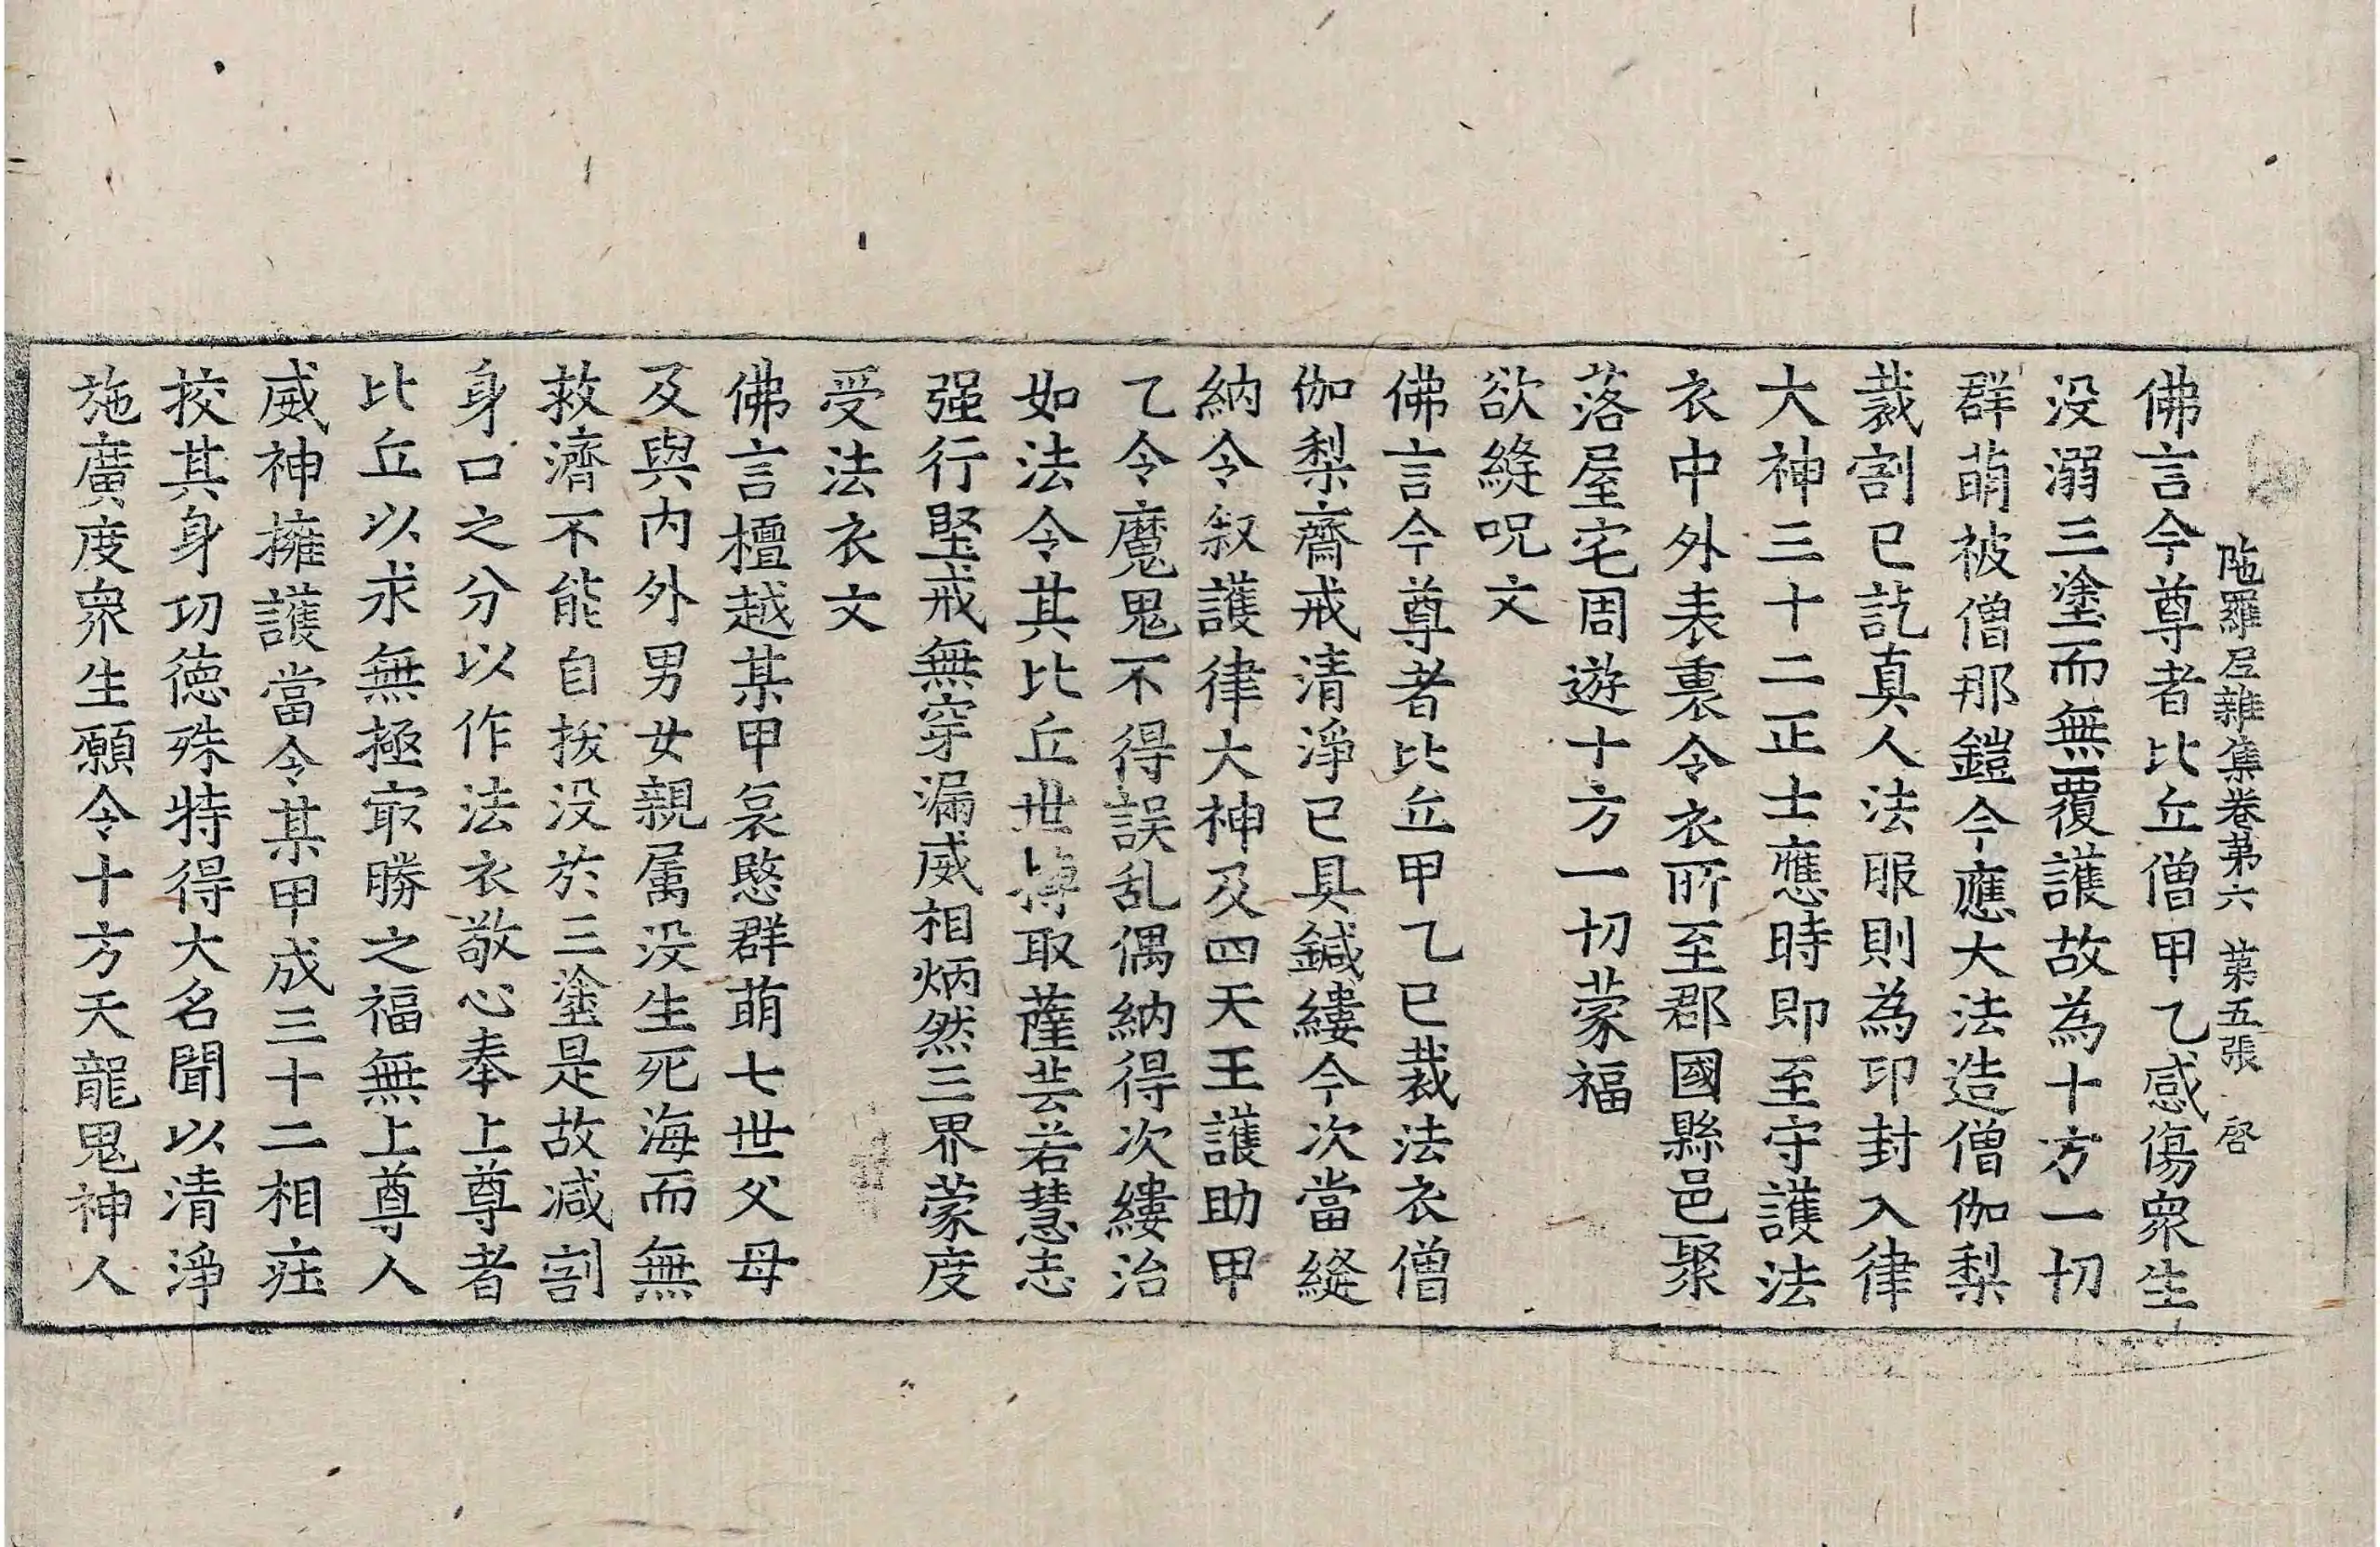 陁羅尼雜集卷苐六　苐五張　啓
佛言今尊者比丘僧甲乙感傷衆生
没溺三塗而無覆護故為十方一切
群萌被僧那鎧今應大法造僧伽梨
裁割已訖真人法服則為印封入律
大神三十二正士應時即至守護法
衣中外表裏令衣所至郡國縣邑聚
落屋宅周遊十方一切蒙福
欲縫呪文
佛言今尊者比丘甲乙已裁法衣僧
伽梨齋戒清淨已具鍼縷今次當縫
納令叙護律大神及四天王護助甲
乙令魔鬼不得誤乱偶納得次縷治
如法令其比丘世摶取薩芸若慧志
强行堅戒無穿漏威相炳然三界蒙度
受法衣文
佛言檀越某甲哀愍群萌七世父母
及與内外男女親属没生死海而無
救濟不能自拔没於三塗是故减割
身口之分以作法衣敬心奉上尊者
比丘以求無極㝡勝之福無上尊人
威神擁護當令某甲成三十二相莊
挍其身功徳殊特得大名聞以清淨
施廣度衆生願令十方天龍鬼神人